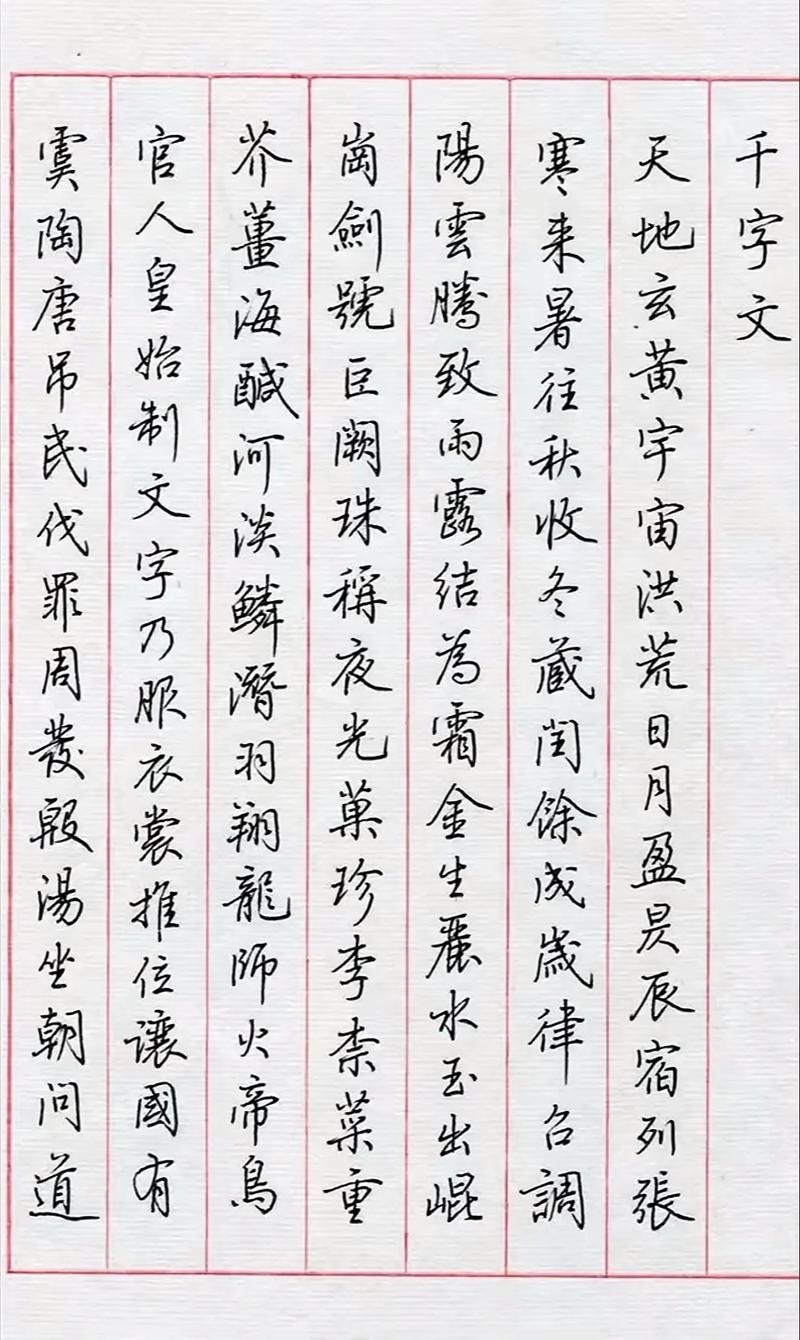 千字文
天地玄黃宇宙洪荒日月盈昃辰宿列張
寒来暑往秋收冬蔵閏餘成歲律召調
陽雲騰致雨露結為霜金生麗水玉出崐
崗劍號巨闕珠稱夜光菓珍李柰菜重
芥薑海醎河淡鱗潛羽翔龍師火帝鳥
官人皇始制文字乃服衣裳推位讓國有
虞陶唐吊民伐罪周發殷湯坐朝問道